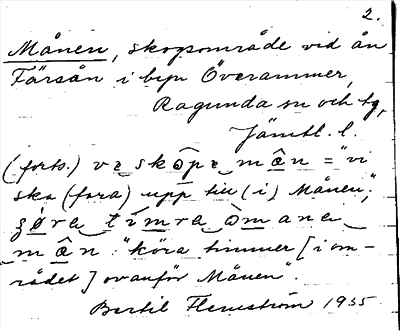 2.
Månen, skogsområde vid ån
Färsån i byn Överammer,
Ragunda sn och tg,
Jämtl. l.
(forts.) vɛ skɔ̂pɛ mân = "vi
ska (fara) upp till (i) Månen";
ʒøra tímra ɔ̀mana
mân: "köra timmer [i om-
rådet] ovanför Månen".
Bertil Flemström 1935